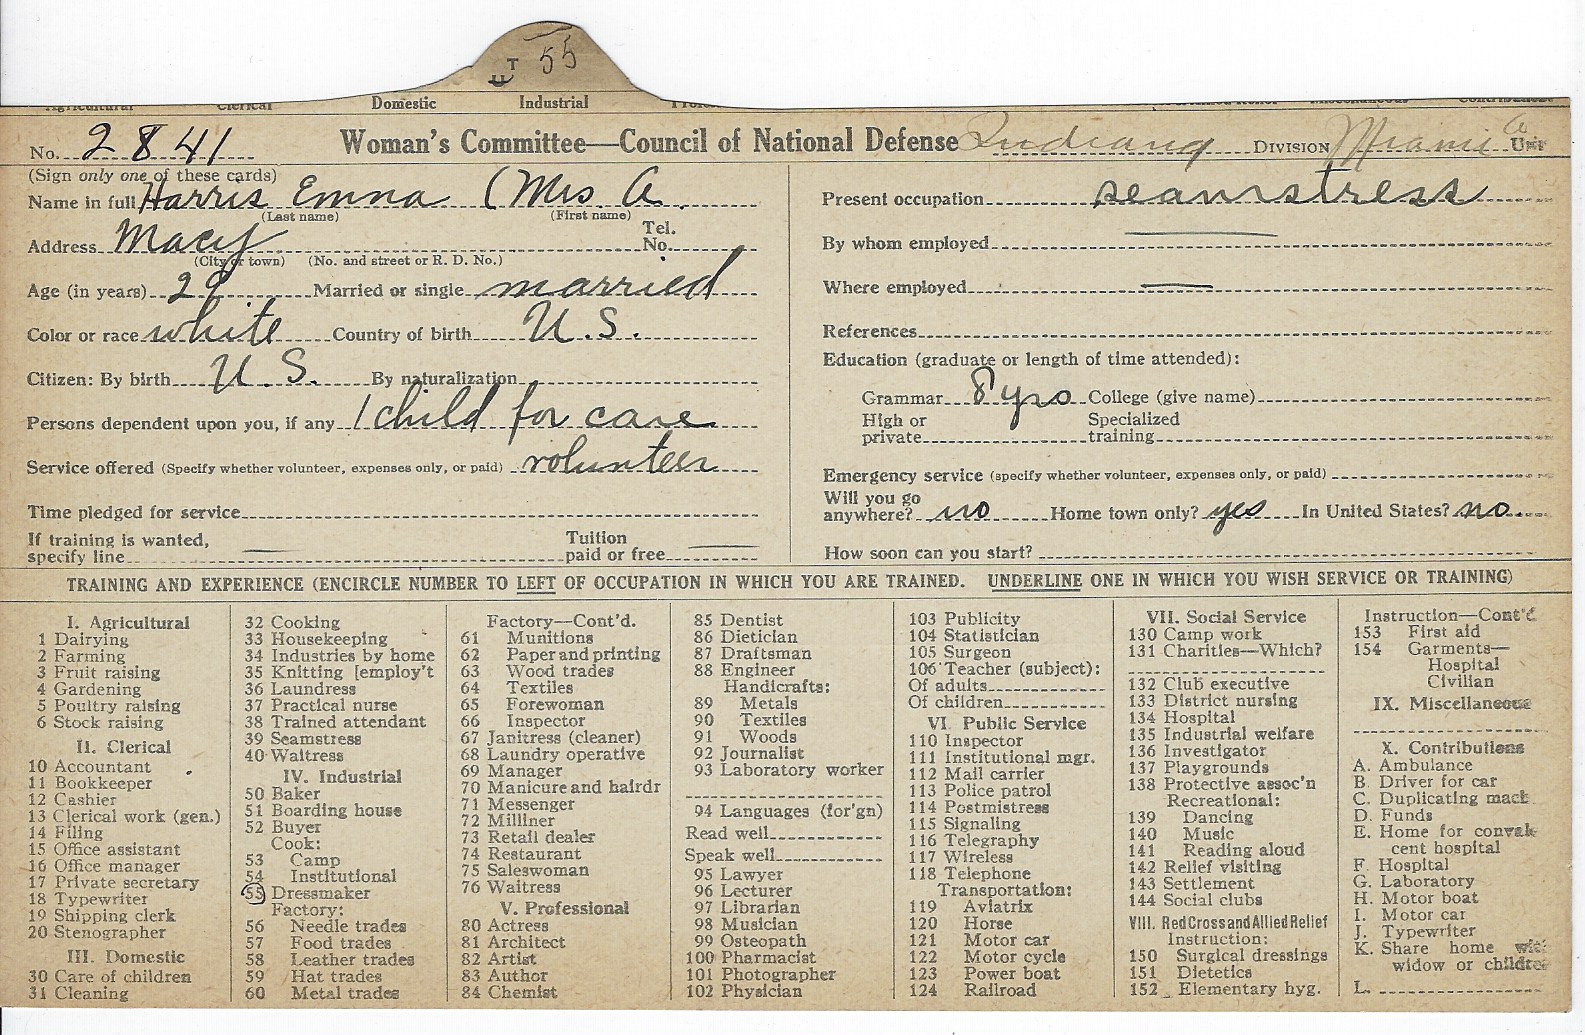 UT 55
Domestic Industrial
No. 2841 Woman's Committee—Council of National Defense Indiana DIVISION Miami Unit
(Sign only one of these cards)
Name in full Harris Emma (Mrs A.
(Last name) (First name)
Address Macy Tel. No.
(City or town) (No. and street or R. D. No.)
Age (in years) 29 Married or single married
Color or race white Country of birth U.S.
Citizen: By birth U.S. By naturalization
Persons dependent upon you, if any 1 child for care
Service offered (Specify whether volunteer, expenses only, or paid) volunteer
Time pledged for service
If training is wanted, specify line — Tuition paid or free —
Present occupation seamstress
By whom employed —
Where employed —
References
Education (graduate or length of time attended):
Grammar 8 yrs College (give name)
High or private Specialized training
Emergency service (specify whether volunteer, expenses only, or paid)
Will you go anywhere? no Home town only? yes In United States? no.
How soon can you start?
TRAINING AND EXPERIENCE (ENCIRCLE NUMBER TO LEFT OF OCCUPATION IN WHICH YOU ARE TRAINED. UNDERLINE ONE IN WHICH YOU WISH SERVICE OR TRAINING)
I. Agricultural
1 Dairying
2 Farming
3 Fruit raising
4 Gardening
5 Poultry raising
6 Stock raising
II. Clerical
10 Accountant
11 Bookkeeper
12 Cashier
13 Clerical work (gen.)
14 Filing
15 Office assistant
16 Office manager
17 Private secretary
18 Typewriter
19 Shipping clerk
20 Stenographer
III. Domestic
30 Care of children
31 Cleaning
32 Cooking
33 Housekeeping
34 Industries by home
35 Knitting [employ't
36 Laundress
37 Practical nurse
38 Trained attendant
39 Seamstress
40 Waitress
IV. Industrial
50 Baker
51 Boarding house
52 Buyer
Cook:
53 Camp
54 Institutional
55 Dressmaker
Factory:
56 Needle trades
57 Food trades
58 Leather trades
59 Hat trades
60 Metal trades
Factory—Cont'd.
61 Munitions
62 Paper and printing
63 Wood trades
64 Textiles
65 Forewoman
66 Inspector
67 Janitress (cleaner)
68 Laundry operative
69 Manager
70 Manicure and hairdr
71 Messenger
72 Milliner
73 Retail dealer
74 Restaurant
75 Saleswoman
76 Waitress
V. Professional
80 Actress
81 Architect
82 Artist
83 Author
84 Chemist
85 Dentist
86 Dietician
87 Draftsman
88 Engineer
Handicrafts:
89 Metals
90 Textiles
91 Woods
92 Journalist
93 Laboratory worker
94 Languages (for'gn)
Read well
Speak well
95 Lawyer
96 Lecturer
97 Librarian
98 Musician
99 Osteopath
100 Pharmacist
101 Photographer
102 Physician
103 Publicity
104 Statistician
105 Surgeon
106 Teacher (subject):
Of adults
Of children
VI. Public Service
110 Inspector
111 Institutional mgr.
112 Mail carrier
113 Police patrol
114 Postmistress
115 Signaling
116 Telegraphy
117 Wireless
118 Telephone
Transportation:
119 Aviatrix
120 Horse
121 Motor car
122 Motor cycle
123 Power boat
124 Railroad
VII. Social Service
130 Camp work
131 Charities—Which?
132 Club executive
133 District nursing
134 Hospital
135 Industrial welfare
136 Investigator
137 Playgrounds
138 Protective assoc'n
Recreational:
139 Dancing
140 Music
141 Reading aloud
142 Relief visiting
143 Settlement
144 Social clubs
VIII. Red Cross and Allied Relief
Instruction:
150 Surgical dressings
151 Dietetics
152 Elementary hyg.
Instruction—Cont'd.
153 First aid
154 Garments—
Hospital
Civilian
IX. Miscellaneous
X. Contributions
A. Ambulance
B. Driver for car
C. Duplicating mach.
D. Funds
E. Home for conval-
cent hospital
F. Hospital
G. Laboratory
H. Motor boat
I. Motor car
J. Typewriter
K. Share home with
widow or children
L.